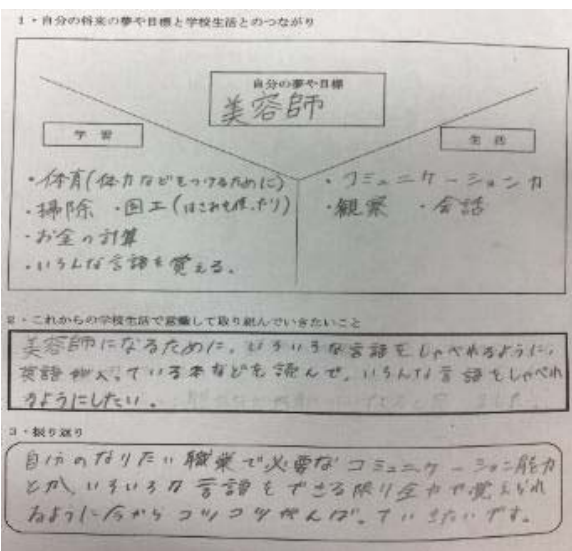 1・自分の将来の夢や目標と学校生活とのつながり
自分の夢や目標
美容師
学習
生活
・体育(体力などをつけるために)
・掃除 ・図工(はさみを使ったり)
・お金の計算
・いろんな言語を覚える。
・コミュニケーション力
・観察 ・会話
2・これからの学校生活で意識して取り組んでいきたいこと
美容師になるために、いろいろな言語をしゃべれるように、
英語が入っている本などを読んで、いろんな言語をしゃべれ
るようにしたい。
3・振り返り
自分のなりたい職業で必要なコミュニケーション能力
とか、いろいろな言語をできる限り全力で覚えられ
るように今からコツコツがんばっていきたいです。